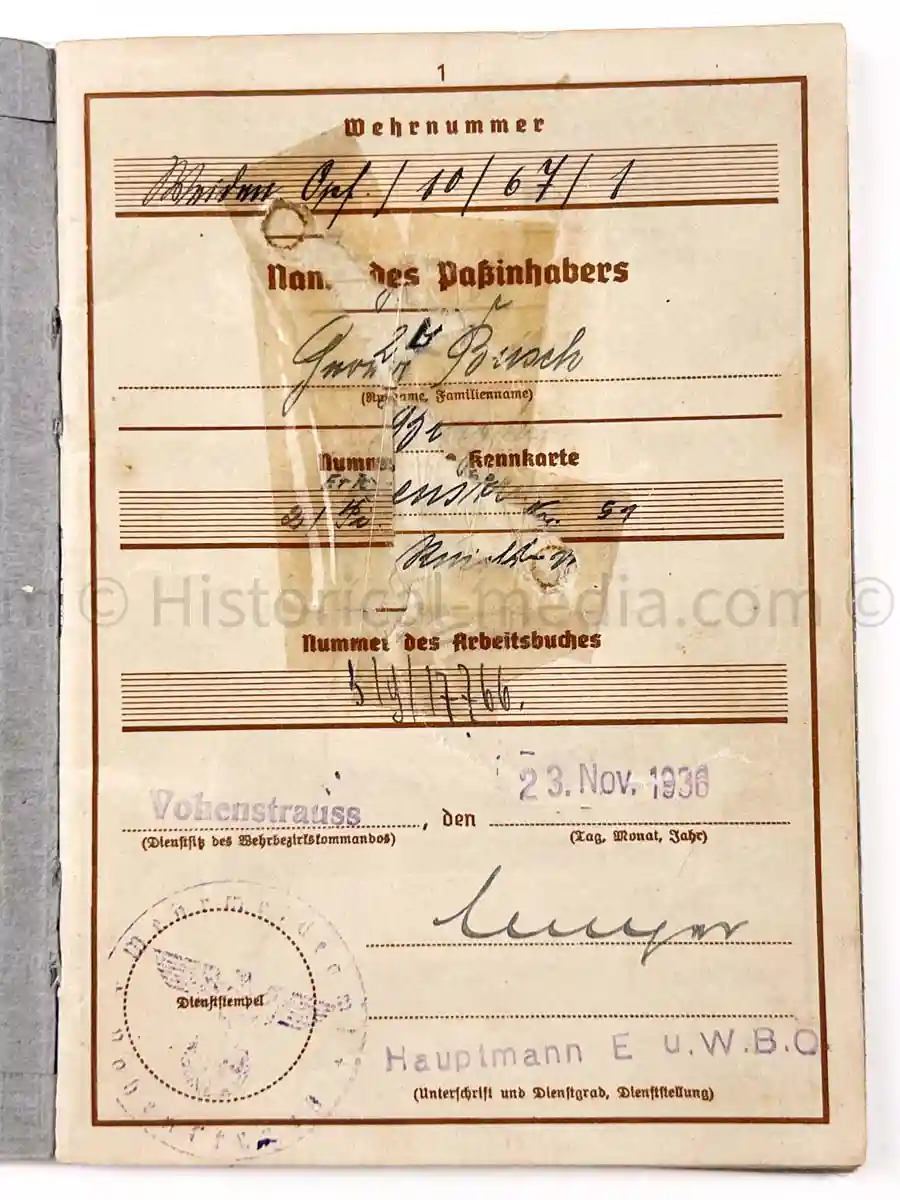 1
Wehrnummer
Weiden Opf. / 10 / 67 / 1
Nam des Paßinhabers
Georg Büsch
(Rufname, Familienname)
Numm Kennkarte
Nr. 51
© Historical-media.com ©
Nummer des Arbeitsbuches
/ 7766.
Vohenstrauss, den 23. Nov. 1936
(Dienstsitz des Wehrbezirkskommandos) (Tag, Monat, Jahr)
Dienststempel
Hauptmann E u. W.B.O.
(Unterschrift und Dienstgrad, Dienststellung)